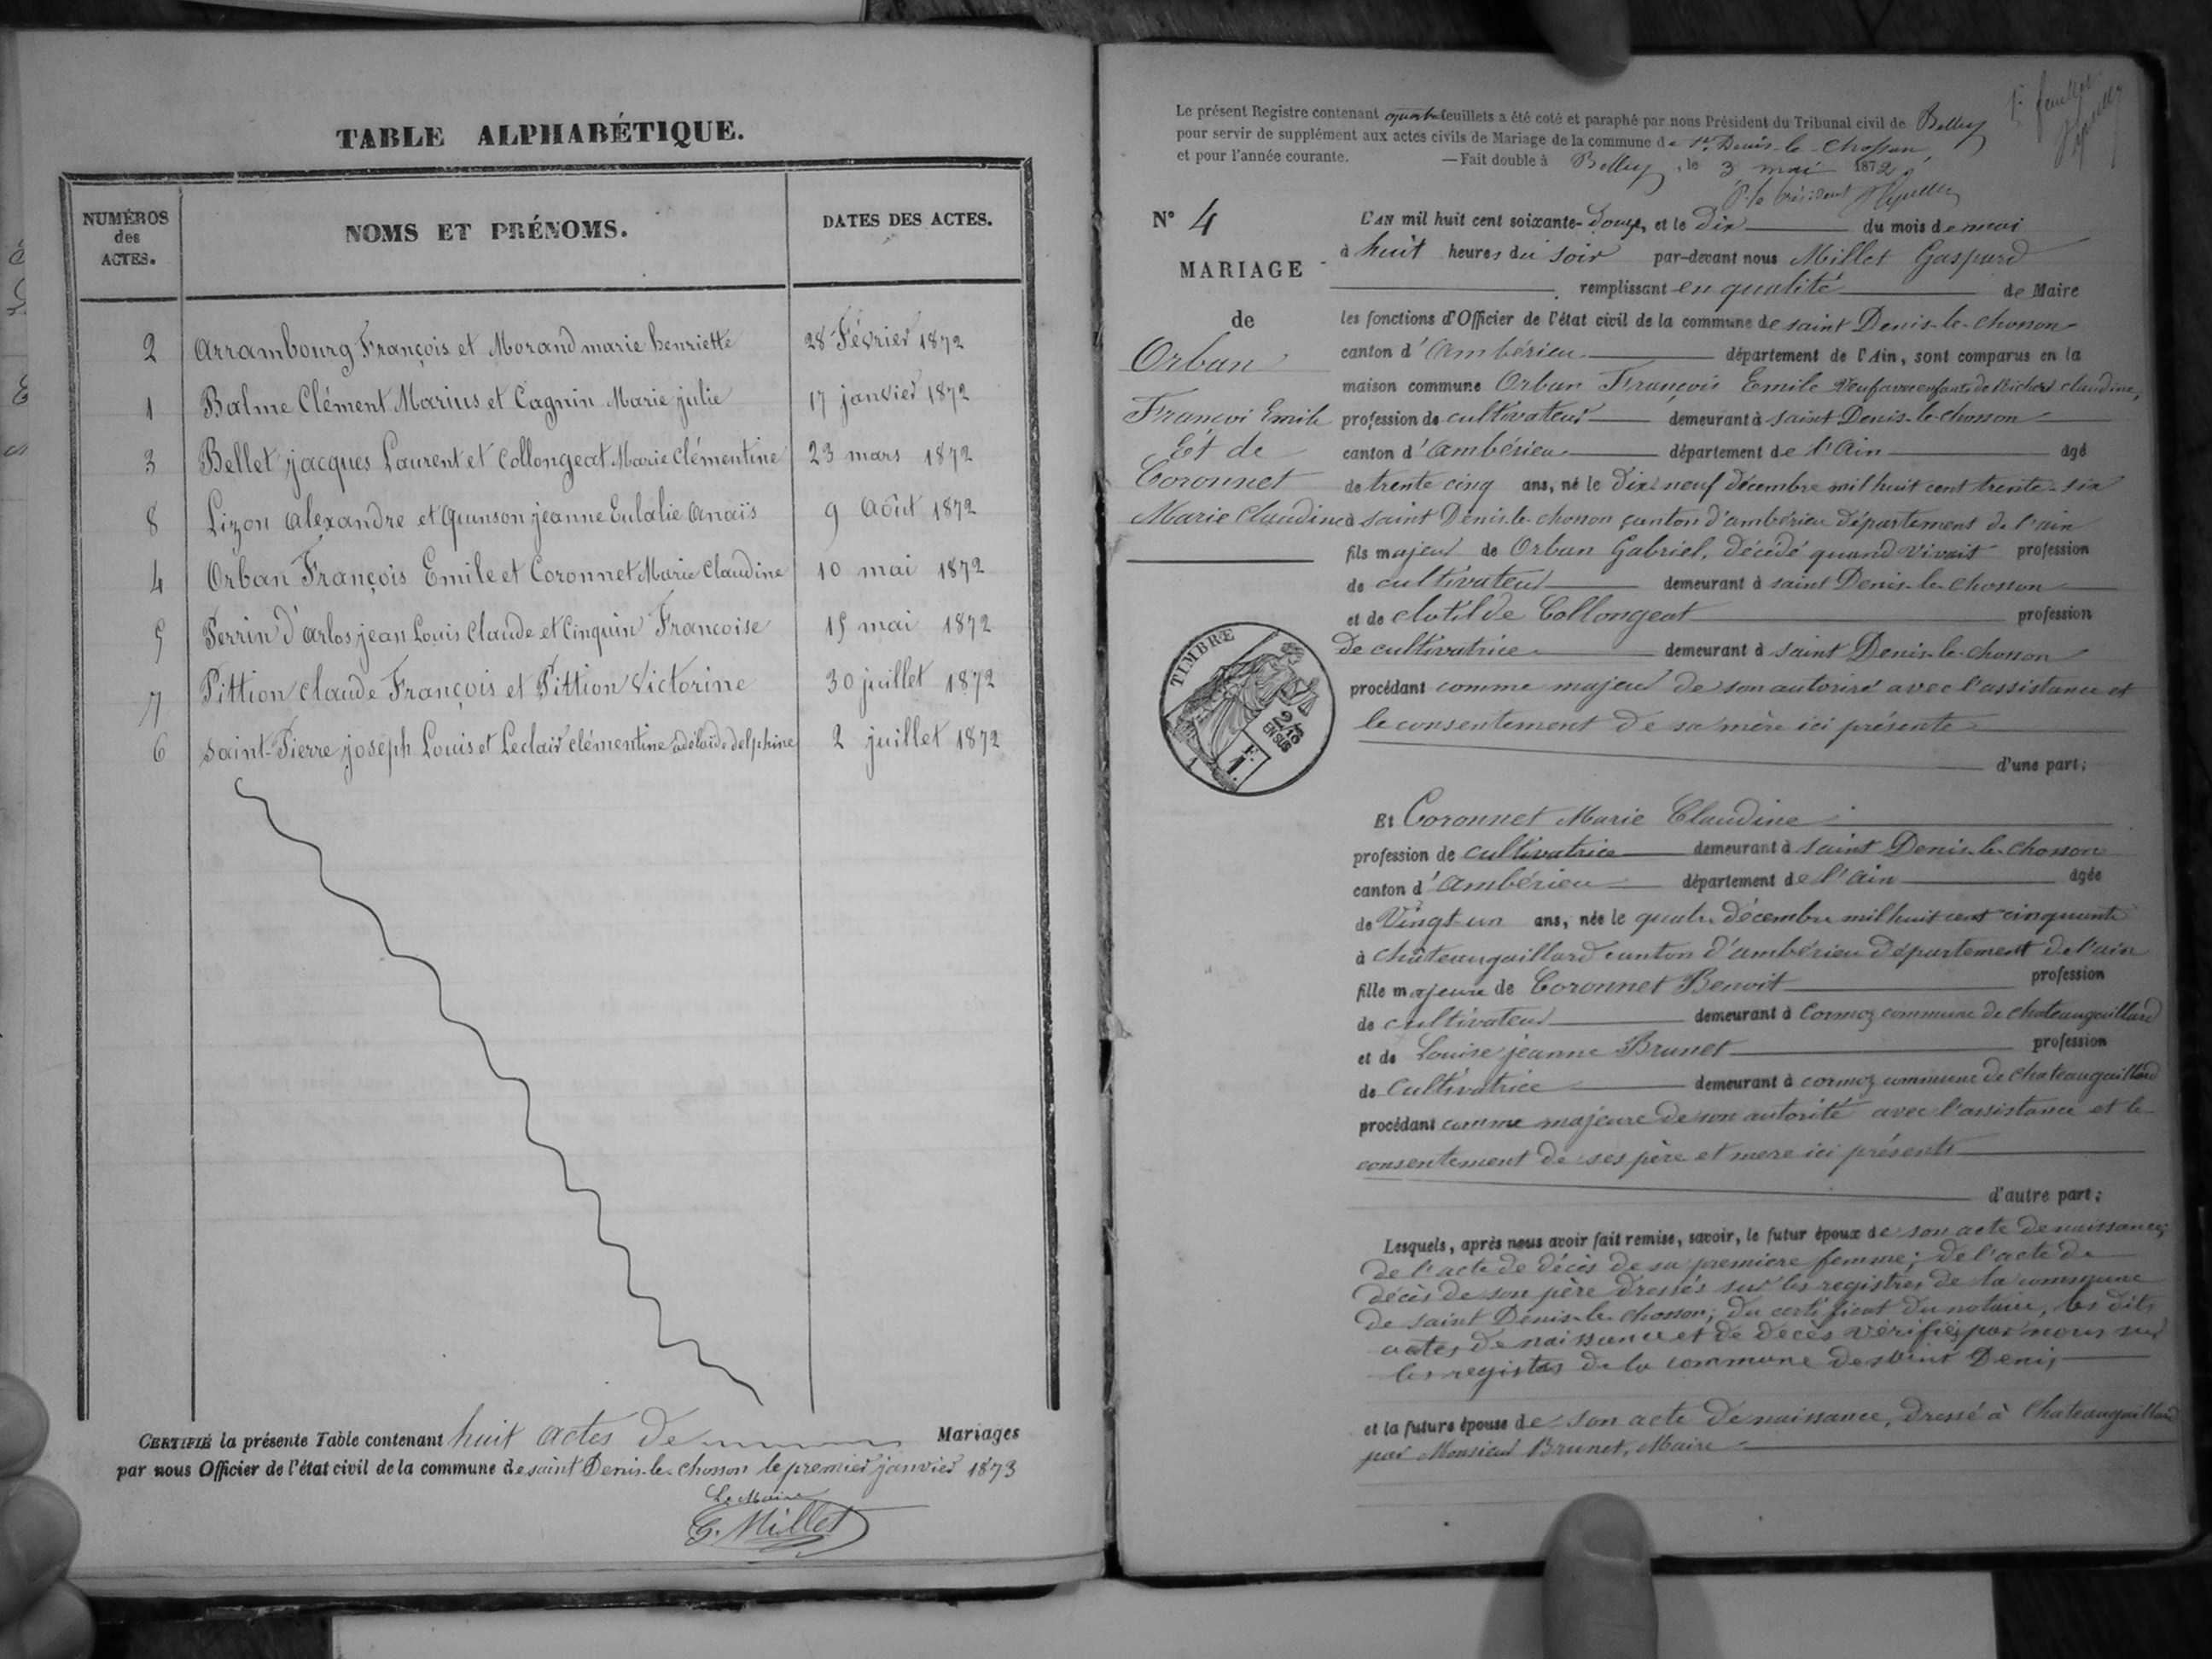 TABLE ALPHABÉTIQUE.
NUMÉROS des ACTES. NOMS ET PRÉNOMS. DATES DES ACTES.
2 Arrambourg François et Morand marie henriette 28 Février 1872
1 Balme Clément Marius et Cagnin Marie julie 17 janvier 1872
3 Bellet jacques Laurent et Collongeat Marie Clémentine 23 mars 1872
8 Lizon alexandre et Quinson jeanne Eulalie Anaïs 9 Août 1872
4 Orban François Emile et Coronnet Marie Claudine 10 mai 1872
5 Perrin d'arlos jean Louis Claude et Cinquin Francoise 15 mai 1872
7 Pittion Claude François et Pittion Victorine 30 juillet 1872
6 Saint-Pierre joseph Louis et Leclair clémentine adélaïde delphine 2 juillet 1872
CERTIFIÉ la présente Table contenant huit actes de Mariages
par nous Officier de l'état civil de la commune de saint Denis-le-chosson le premier janvier 1873
Le Maire
G. Millet
Le présent Registre contenant quatre feuillets a été coté et paraphé par nous Président du Tribunal civil de Belley
pour servir de supplément aux actes civils de Mariage de la commune de St. Denis-le-Chosson,
et pour l'année courante. —Fait double à Belley, le 3 mai 1872
P. le Président
N° 4
MARIAGE
de
Orban
Françoi Emile
Et de
Coronnet
Marie Claudine
TIMBRE
2/10
EN SUS
L'AN mil huit cent soixante-douze, et le dix du mois de mai
à huit heures du soir par-devant nous Millet Gaspard
remplissant en qualité de Maire
les fonctions d'Officier de l'état civil de la commune de saint Denis-le-chosson
canton d'Ambérieu département de l'Ain, sont comparus en la
maison commune Orban François Emile veuf avec enfants de Richerd claudine,
profession de cultivateur demeurant à saint Denis-le-chosson
canton d'Ambérieu département de l'Ain âgé
de trente cinq ans, né le dix-neuf décembre mil huit cent trente-six
à saint Denis-le-chosson canton d'ambérieu département de l'ain
fils majeur de Orban Gabriel, décédé quand vivait profession
de cultivateur demeurant à saint Denis-le-chosson
et de clotilde Collongeat profession
de cultivatrice demeurant à saint Denis-le-chosson
procédant comme majeur de son autorité avec l'assistance et
le consentement de sa mère ici présente
d'une part;
Et Coronnet Marie Claudine
profession de cultivatrice demeurant à saint Denis-le-chosson
canton d'Ambérieu département de l'ain âgée
de Vingt-un ans, née le quatre décembre mil huit cent cinquante
à châteaugaillard canton d'ambérieu département de l'ain
fille majeure de Coronnet Benoit profession
de cultivateur demeurant à Cormoz commune de chateaugaillard
et de Louise jeanne Brunet profession
de Cultivatrice demeurant à cormoz commune de chateaugaillard
procédant comme majeure de son autorité avec l'assistance et le
consentement de ses père et mere ici présents
d'autre part;
Lesquels, après nous avoir fait remise, savoir, le futur époux de son acte de naissance;
de l'acte de décès de sa premiere femme; de l'acte de
décès de son père dressés sur les registres de la commune
de saint Denis-le-chosson; du certificat du notaire, les dits
actes de naissance et de décès vérifiés par nous sur
les registres de la commune de saint Denis
et la future épouse de son acte de naissance, dressé à Chateaugaillard
par Monsieur Brunet, Maire